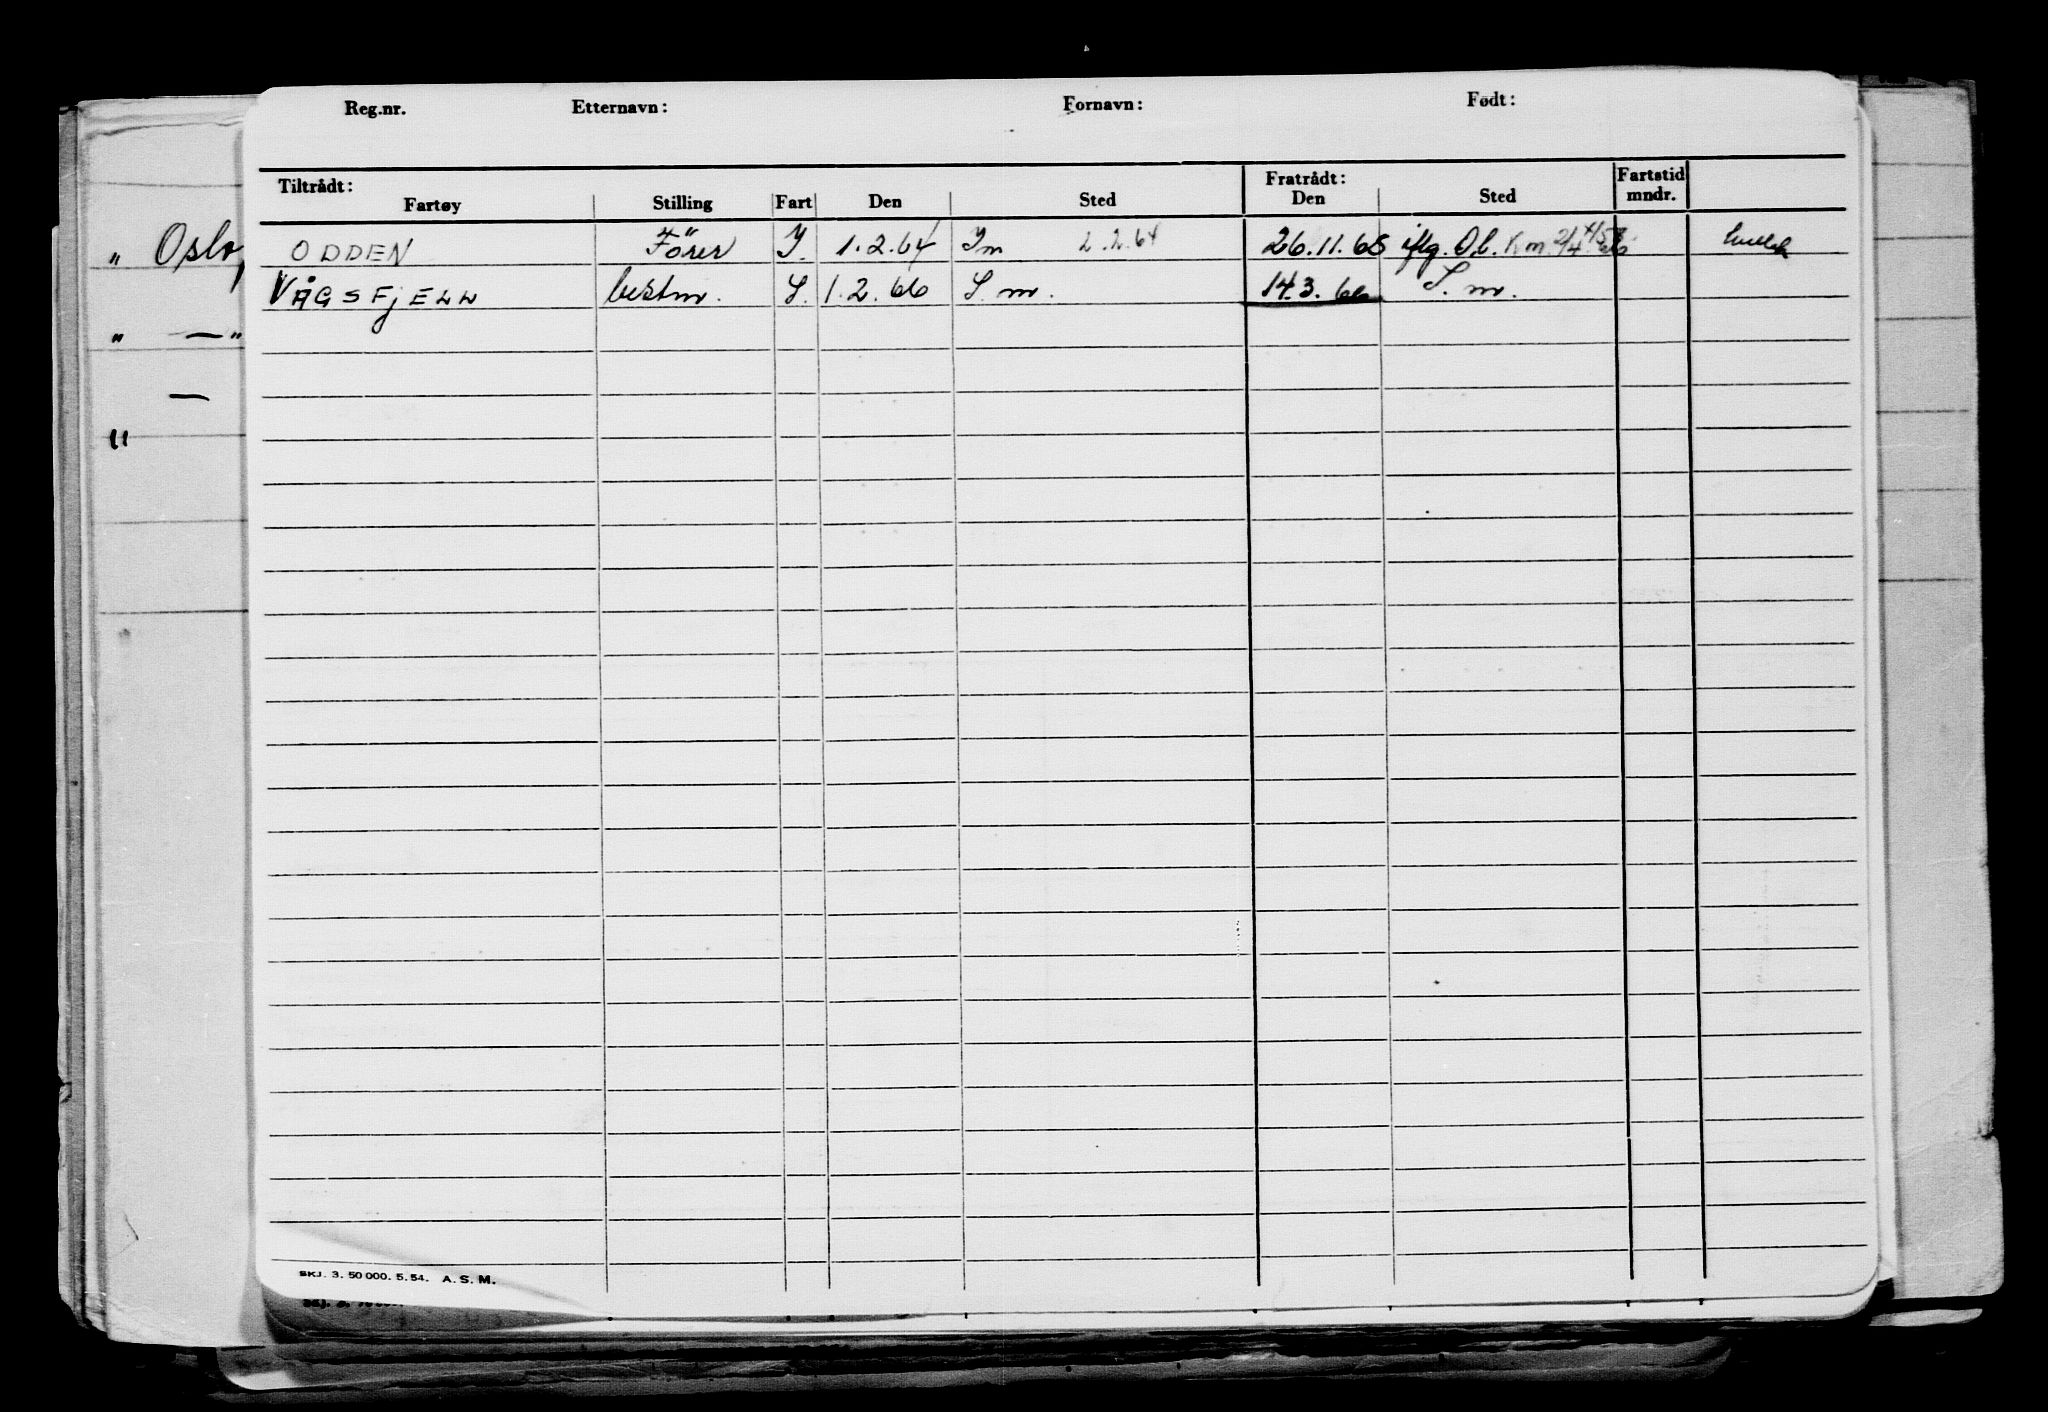 Reg.nr. Etternavn: Fornavn: Født:
Tiltrådt: Fratrådt: Fartstid
Fartøy Stilling Fart Den Sted Den Sted mndr.
" Oslo, ODDEN Förer I. 1.2.64 Im 2.2.64 26.11.65 iflg. O.b. Km.
VÅGSFJELL bestm. S. 1.2.66 S.m. 14.3.66 S.m.
" — "
—
"
SKJ. 3. 50 000. 5. 54. A. S. M.